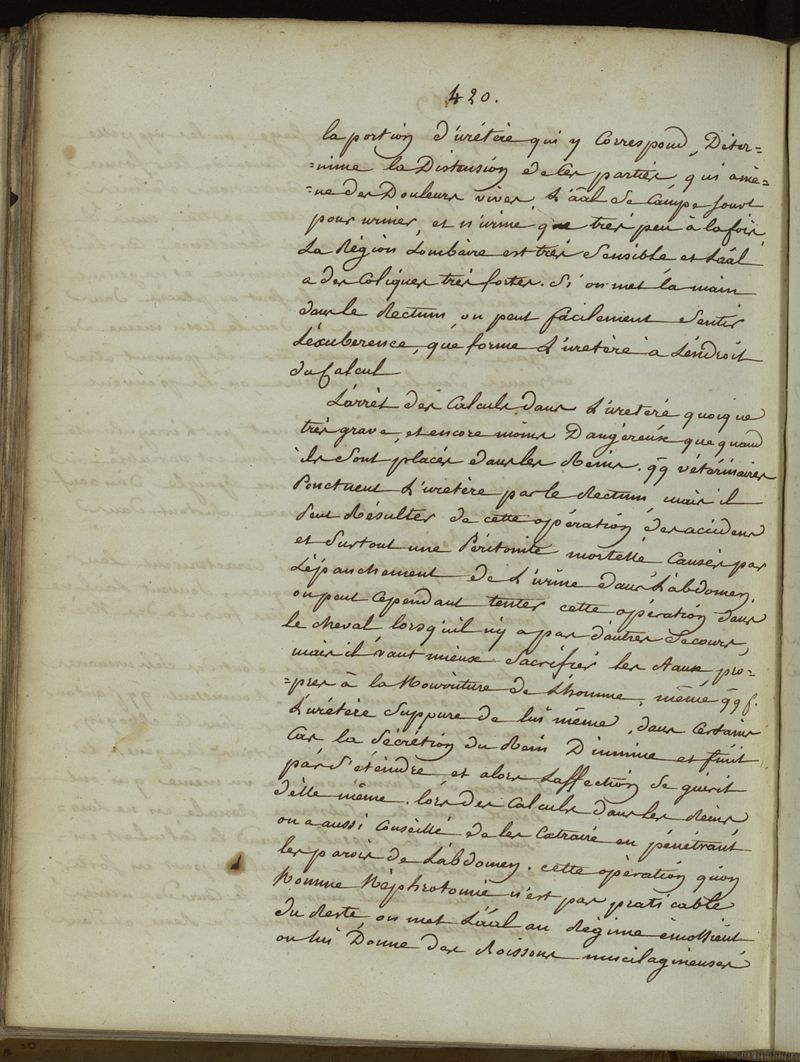 420.
la portion d'urétère qui y correspond, Déter=
=mine la Distension de ces parties qui amè=
=ne des Douleurs vives, L'ãal se Campe souvt
pour uriner, et n'urine que très peu à la fois,
La Région Lombaire est très Sensible et L'ãal
a des Coliques très fortes. Si on met la main
dans le Rectum, on peut facilement Sentir
L'éxuberence, que forme L'uretère à L'endroit
du Calcul
L'arrêt des Calculs dans L'ureteré quoique
très grave, est encore moins Dangéreux que quand
ils sont placés dans les Reins. qq vétérinaires
Ponctuent L'uretère par le Rectum, mais il
peut Résulter de cette opération des accidens
et Surtout une Péritonite mortelle Causés par
L'épanchement de L'urine dans L'abdomen.
on peut Cependant tenter cette opération dans
le cheval lorsqu'il n'y a pas d'autres Secours,
mais il vaut mieux Sacrifier les ãaux pro=
=pres à la Nourriture de L'homme, même qq f.
L'urétère Suppure de lui même, dans Certains
Cas la Sécrétion du Rein Diminue et finit
par S'éteindre et alors L'affection se guérit
d'elle même. lors des Calculs dans les Reins
on a aussi Conseillé de les Extraire en pénétrant
les parois de L'abdomen. cette opération qu'on
Nomme Néphrotomie n'est pas praticable
du Reste, on met L'ãal au Régime émollient
on lui Donne des Boissons mucilagineuses